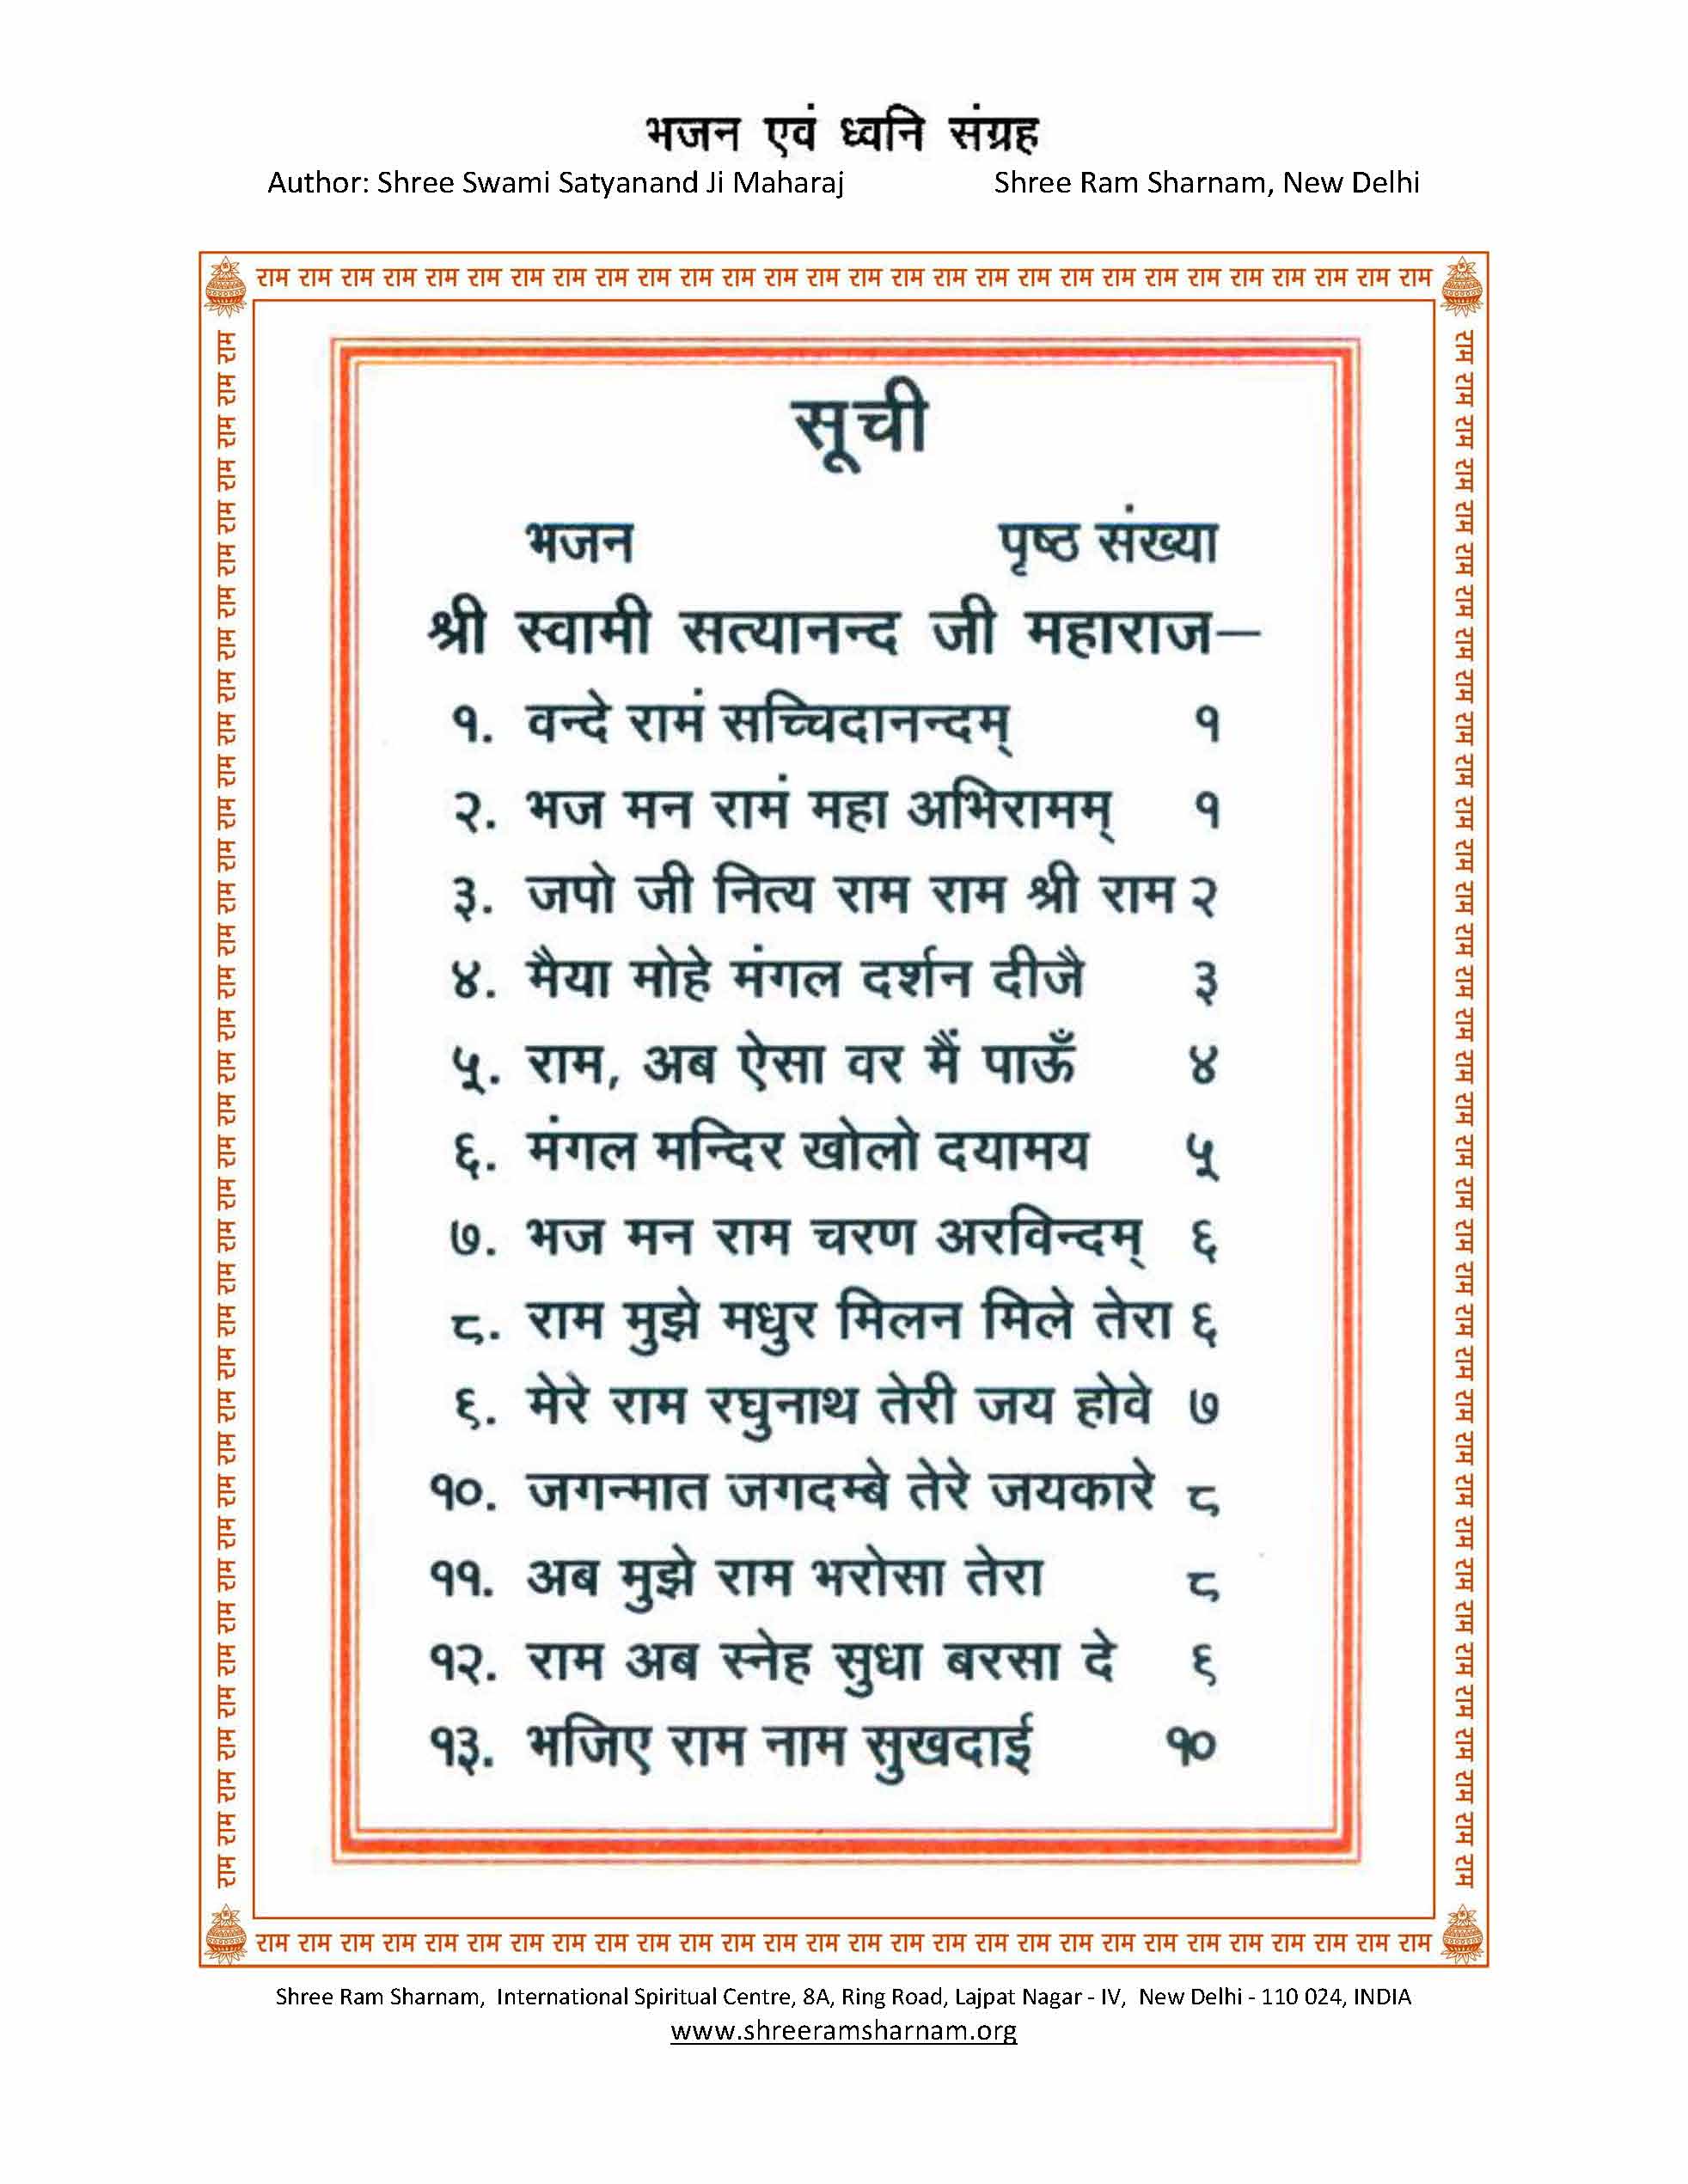 भजन एवं ध्वनि संग्रह
Author: Shree Swami Satyanand Ji Maharaj Shree Ram Sharnam, New Delhi
राम राम राम राम राम राम राम राम राम राम राम राम राम राम राम राम राम राम राम राम राम राम राम राम राम राम राम राम
राम राम राम राम राम राम राम राम राम राम राम राम राम राम राम राम राम राम राम राम राम राम राम राम राम राम राम राम राम राम राम राम राम राम राम राम राम
सूची
भजन पृष्ठ संख्या
श्री स्वामी सत्यानन्द जी महाराज—
१. वन्दे रामं सच्चिदानन्दम् १
२. भज मन रामं महा अभिरामम् १
३. जपो जी नित्य राम राम श्री राम २
४. मैया मोहे मंगल दर्शन दीजै ३
५. राम, अब ऐसा वर मैं पाऊँ ४
६. मंगल मन्दिर खोलो दयामय ५
७. भज मन राम चरण अरविन्दम् ६
८. राम मुझे मधुर मिलन मिले तेरा ६
९. मेरे राम रघुनाथ तेरी जय होवे ७
१०. जगन्मात जगदम्बे तेरे जयकारे ८
११. अब मुझे राम भरोसा तेरा ८
१२. राम अब स्नेह सुधा बरसा दे ९
१३. भजिए राम नाम सुखदाई १०
राम राम राम राम राम राम राम राम राम राम राम राम राम राम राम राम राम राम राम राम राम राम राम राम राम राम राम राम राम राम राम राम राम राम राम राम राम
राम राम राम राम राम राम राम राम राम राम राम राम राम राम राम राम राम राम राम राम राम राम राम राम राम राम राम राम
Shree Ram Sharnam, International Spiritual Centre, 8A, Ring Road, Lajpat Nagar - IV, New Delhi - 110 024, INDIA
www.shreeramsharnam.org